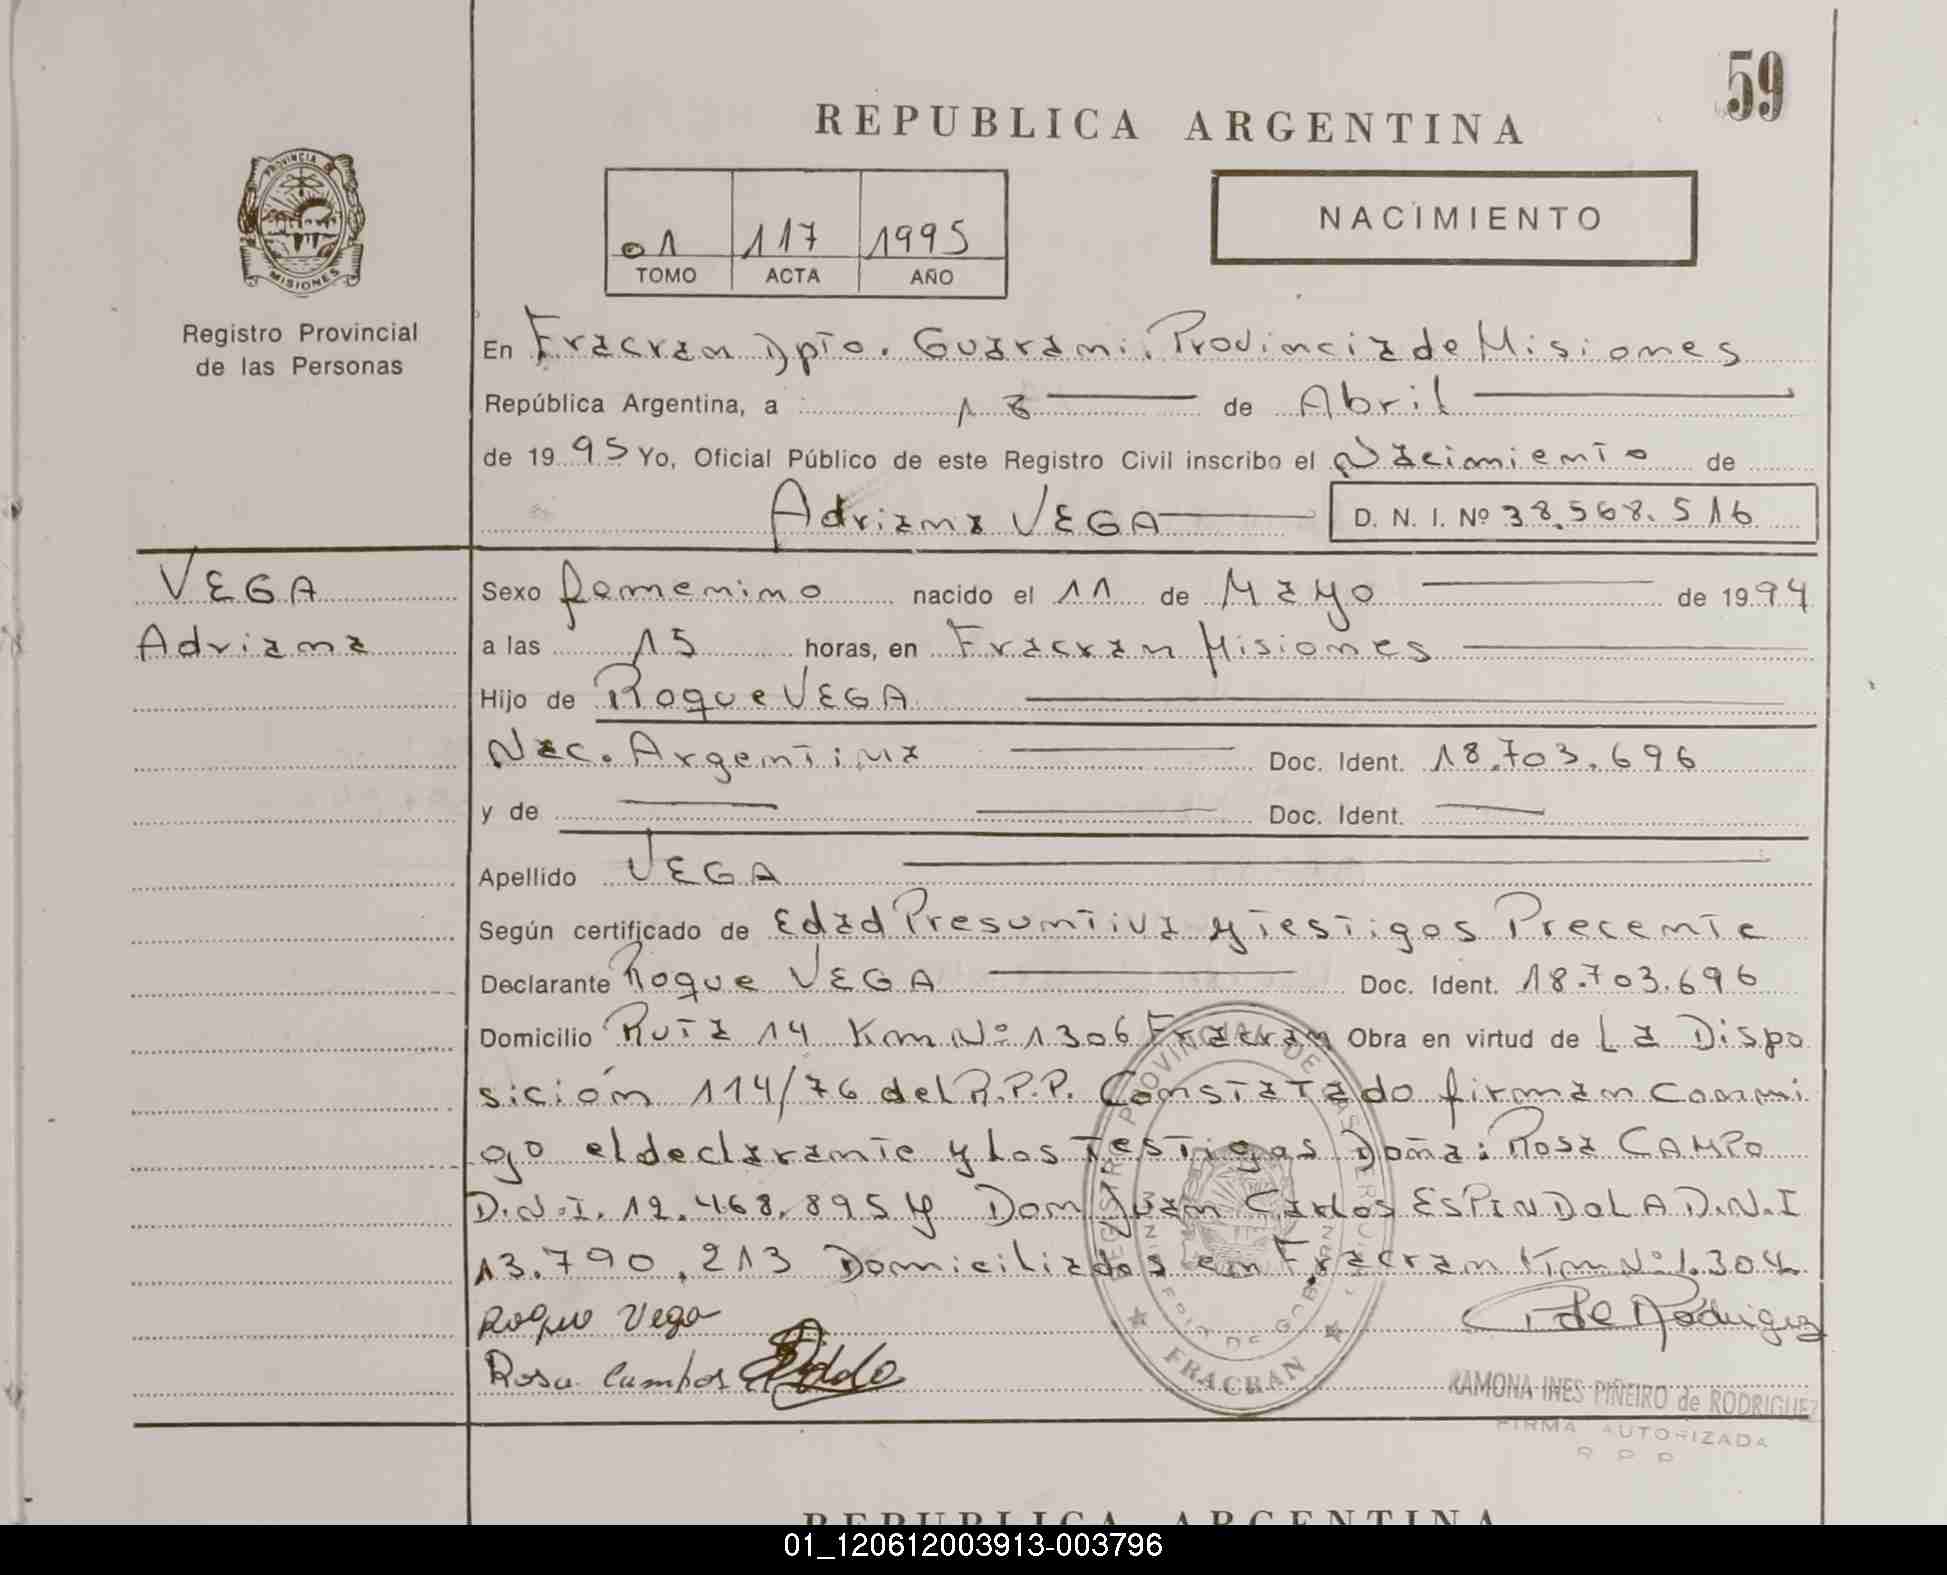 59
REPUBLICA ARGENTINA
PROVINCIA DE
MISIONES
Registro Provincial
de las Personas
01 117 1995
TOMO ACTA AÑO
NACIMIENTO
En Fracran Dpto. Guarani. Provincia de Misiones
República Argentina, a 18 de Abril
de 1995 Yo, Oficial Público de este Registro Civil inscribo el Nacimiento de
Adriana VEGA D. N. I. Nº 38.568.516
VEGA
Adriana
Sexo femenino nacido el 11 de Mayo de 1994
a las 15 horas, en Fracran Misiones
Hijo de Roque VEGA
Nac. Argentina Doc. Ident. 18.703.696
y de Doc. Ident.
Apellido VEGA
Según certificado de Edad Presuntiva y Testigos Precente
Declarante Roque VEGA Doc. Ident. 18.703.696
Domicilio Ruta 14 Km Nº 1306 Fracran Obra en virtud de La Dispo
sición 114/76 del R.P.P. Constatado firman conmi
go el declarante y Los Testigos Doña: Rosa CAMPO
D.N.I. 12.468.895 y Don Juan Carlos ESPINDOLA D.N.I
13.790.213 Domiciliados en Fracran Km Nº 1.304
Roque Vega
Rosa Campos
P de Rodriguez
REGISTRO PROVINCIAL DE LAS PERSONAS
FRACRAN
RAMONA INES PIÑEIRO de RODRIGUEZ
FIRMA AUTORIZADA
R P P
REPUBLICA ARGENTINA
01_120612003913-003796